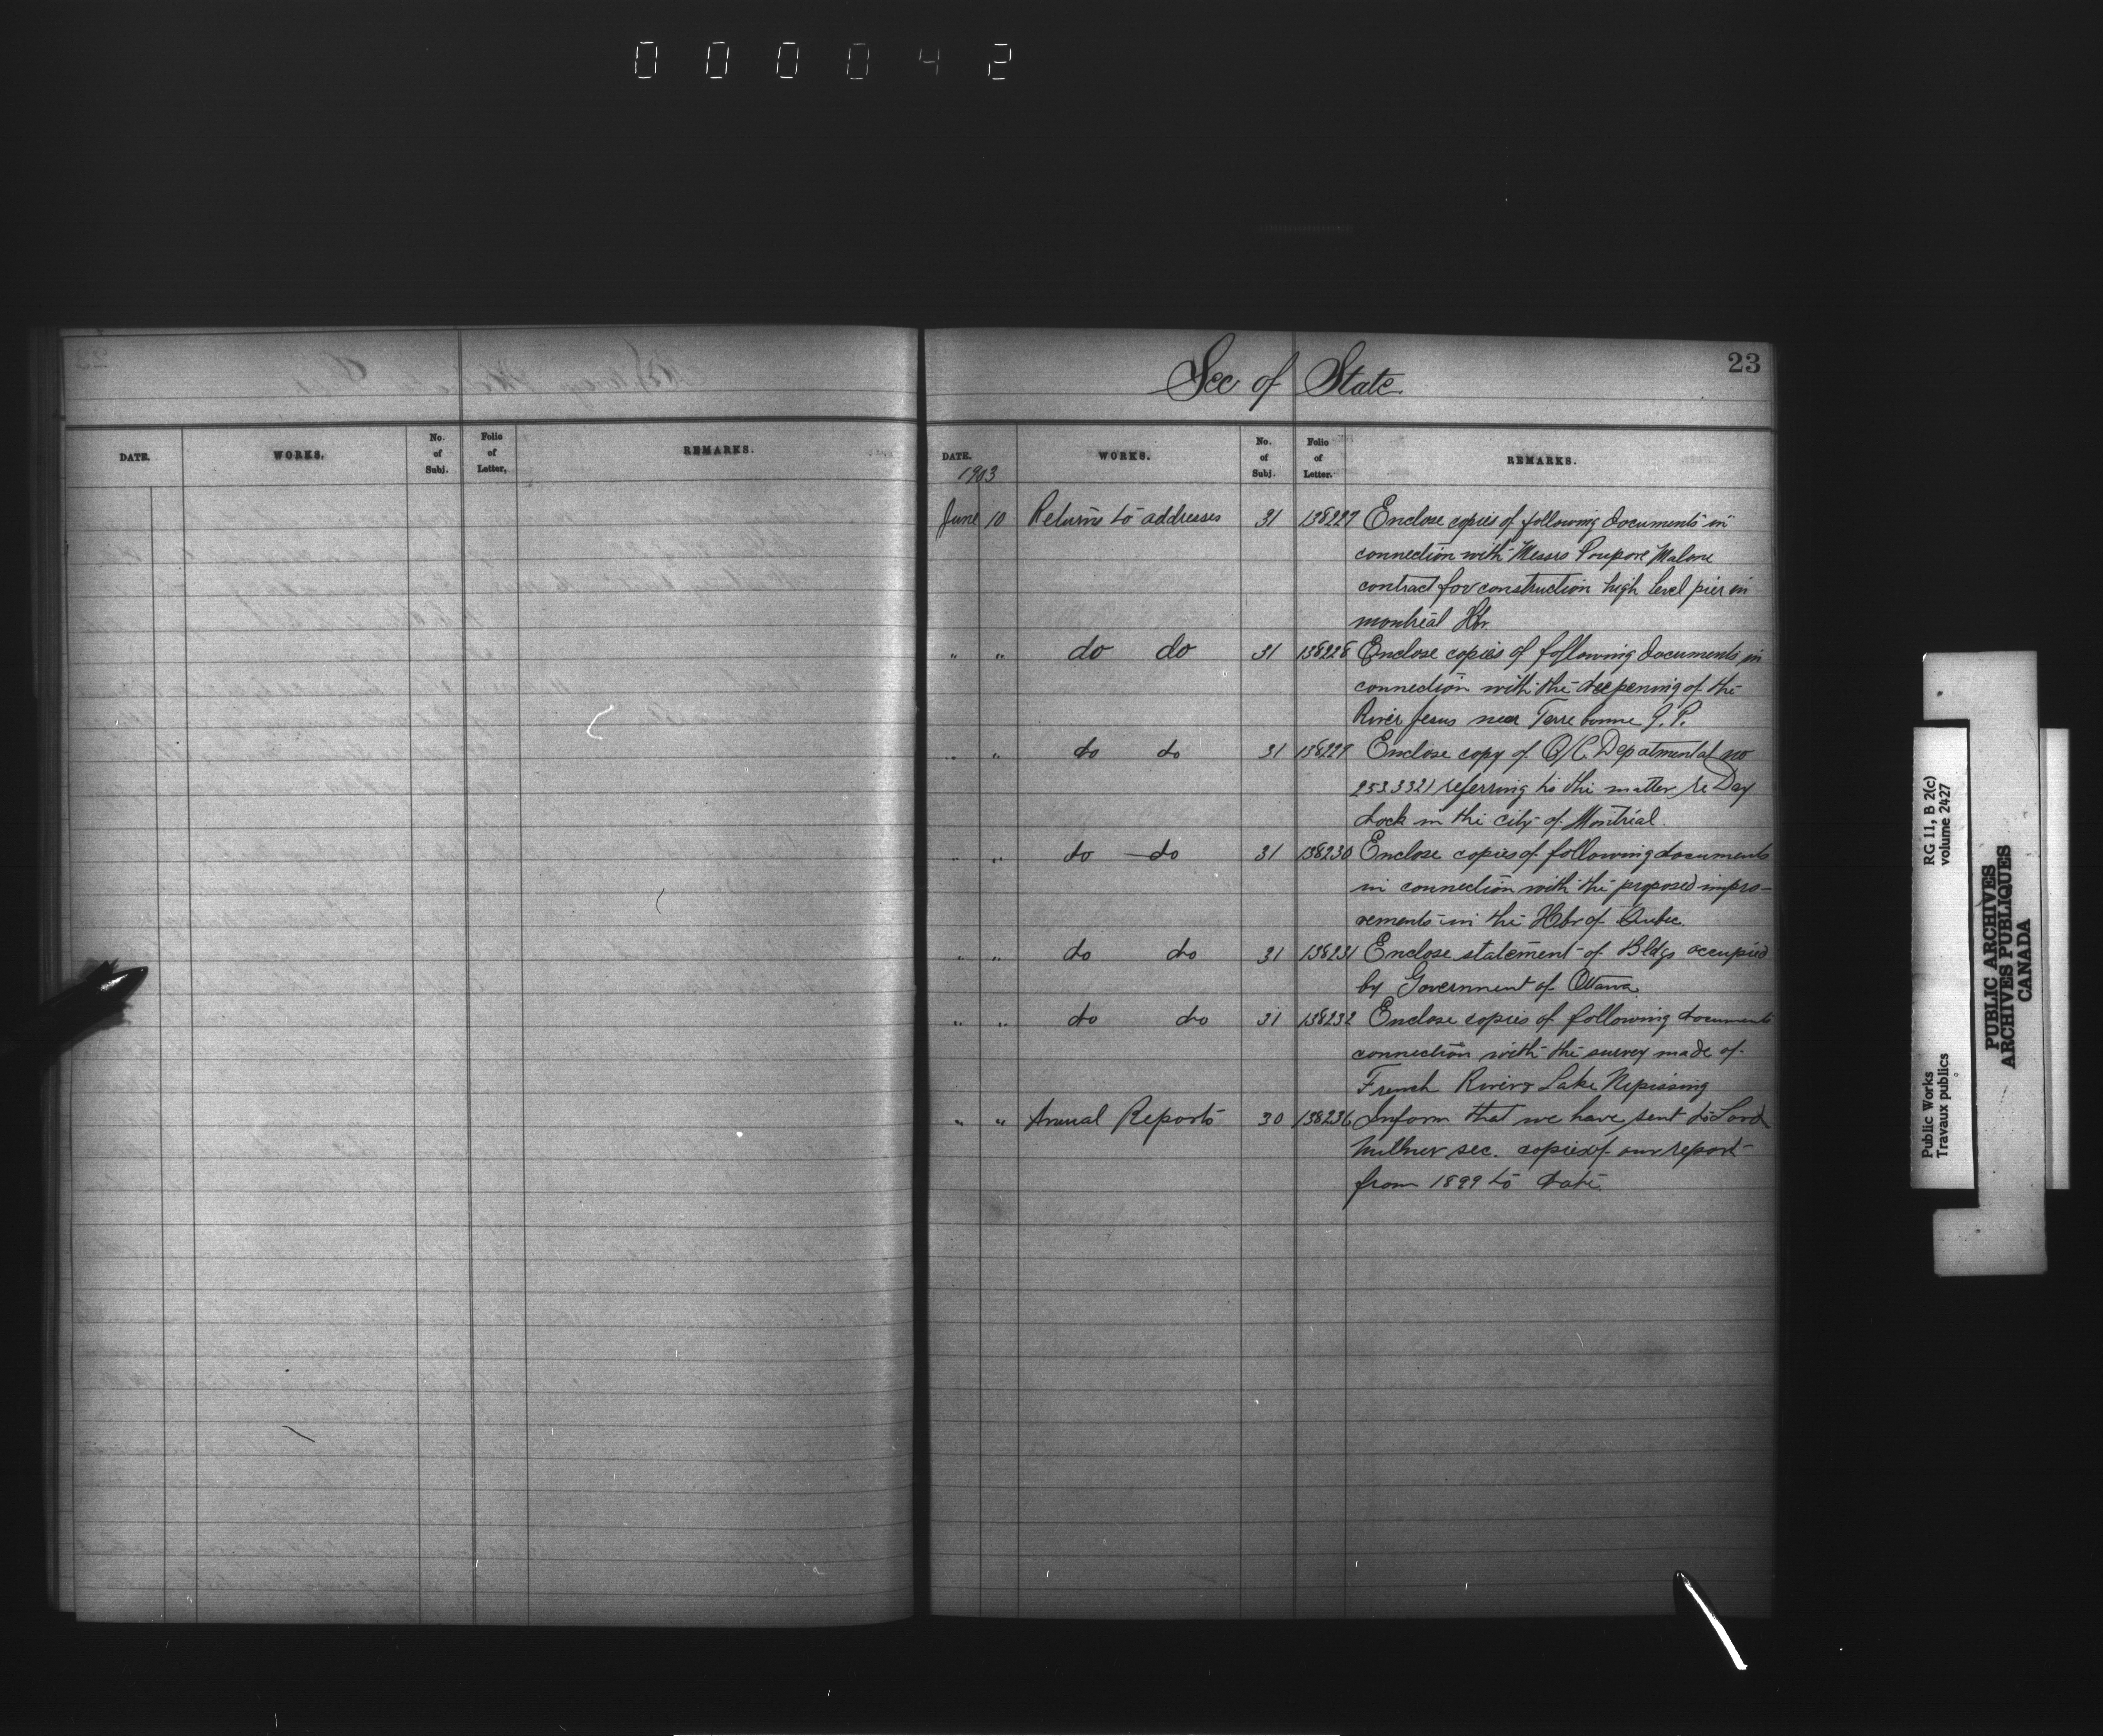 000042
DATE. WORKS. No. of Subj. Folio of Letter, REMARKS.
23
Sec of State
DATE. WORKS. No. of Subj. Folio of Letter. REMARKS.
1903
June 10 Returns to addresses 31 138227 Enclose copies of following documents in
connection with Messrs Poupore Malone
contract for construction high level pier in
montreal Hbr.
" " do do 31 138228 Enclose copies of following documents in
connection with the deepening of the
River Jesus near Terrebonne Q. P.
" " do do 31 138229 Enclose copy of O/C Depatmental no
253321 referring to the matter re Dry
dock in the city of Montreal.
" " do do 31 138230 Enclose copies of following documents
in connection with the proposed impro-
vements in the Hbr of Quebec.
" " do do 31 138231 Enclose statement of Bldgs occupied
by Government of Ottawa.
" " do do 31 138232 Enclose copies of following documents
connection with the survey made of
French River & Lake Nipissing
" " Annual Reports 30 138236 Inform that we have sent to Lord
Milner sec. copies of our report
from 1899 to date.
RG 11, B 2(c)
volume 2427
Public Works
Travaux publics
PUBLIC ARCHIVES
ARCHIVES PUBLIQUES
CANADA